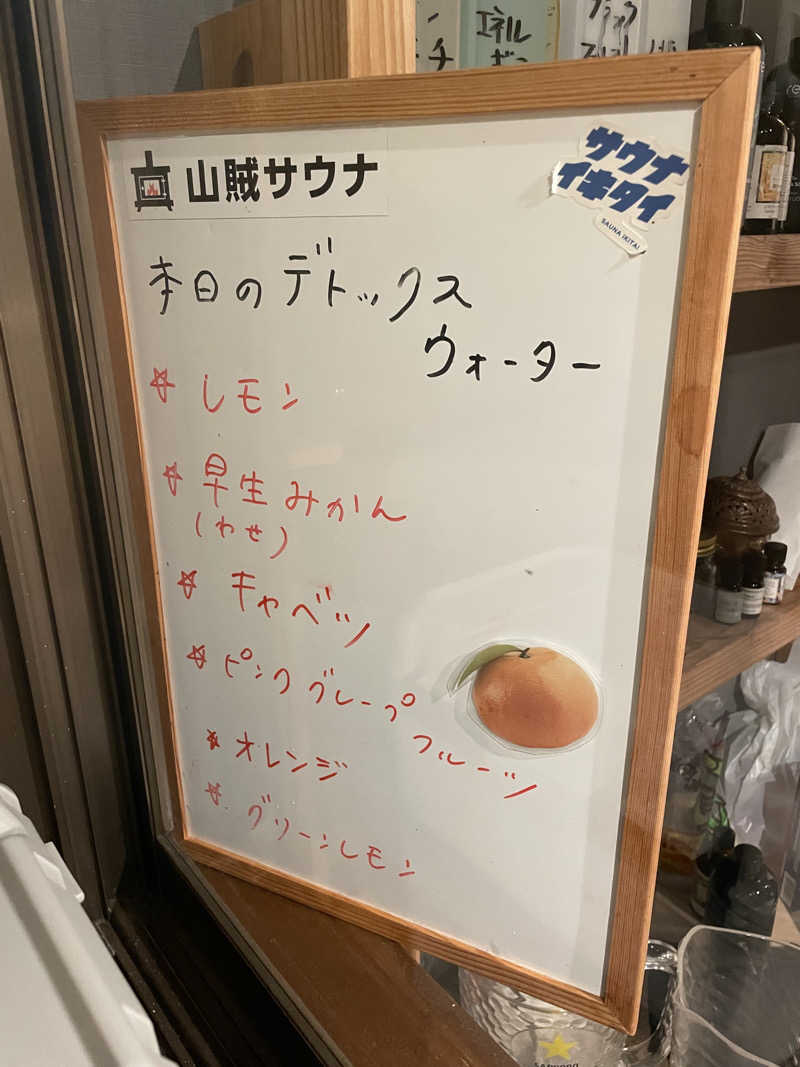 エネル
山賊サウナ
サウナ
イキタイ
SAUNA IKITAI
本日のデトックス
ウォーター
☆ レモン
☆ 早生みかん
(わせ)
☆ キャベツ
☆ ピンクグレープ
フルーツ
☆ オレンジ
☆ グリーンレモン
SAPPORO